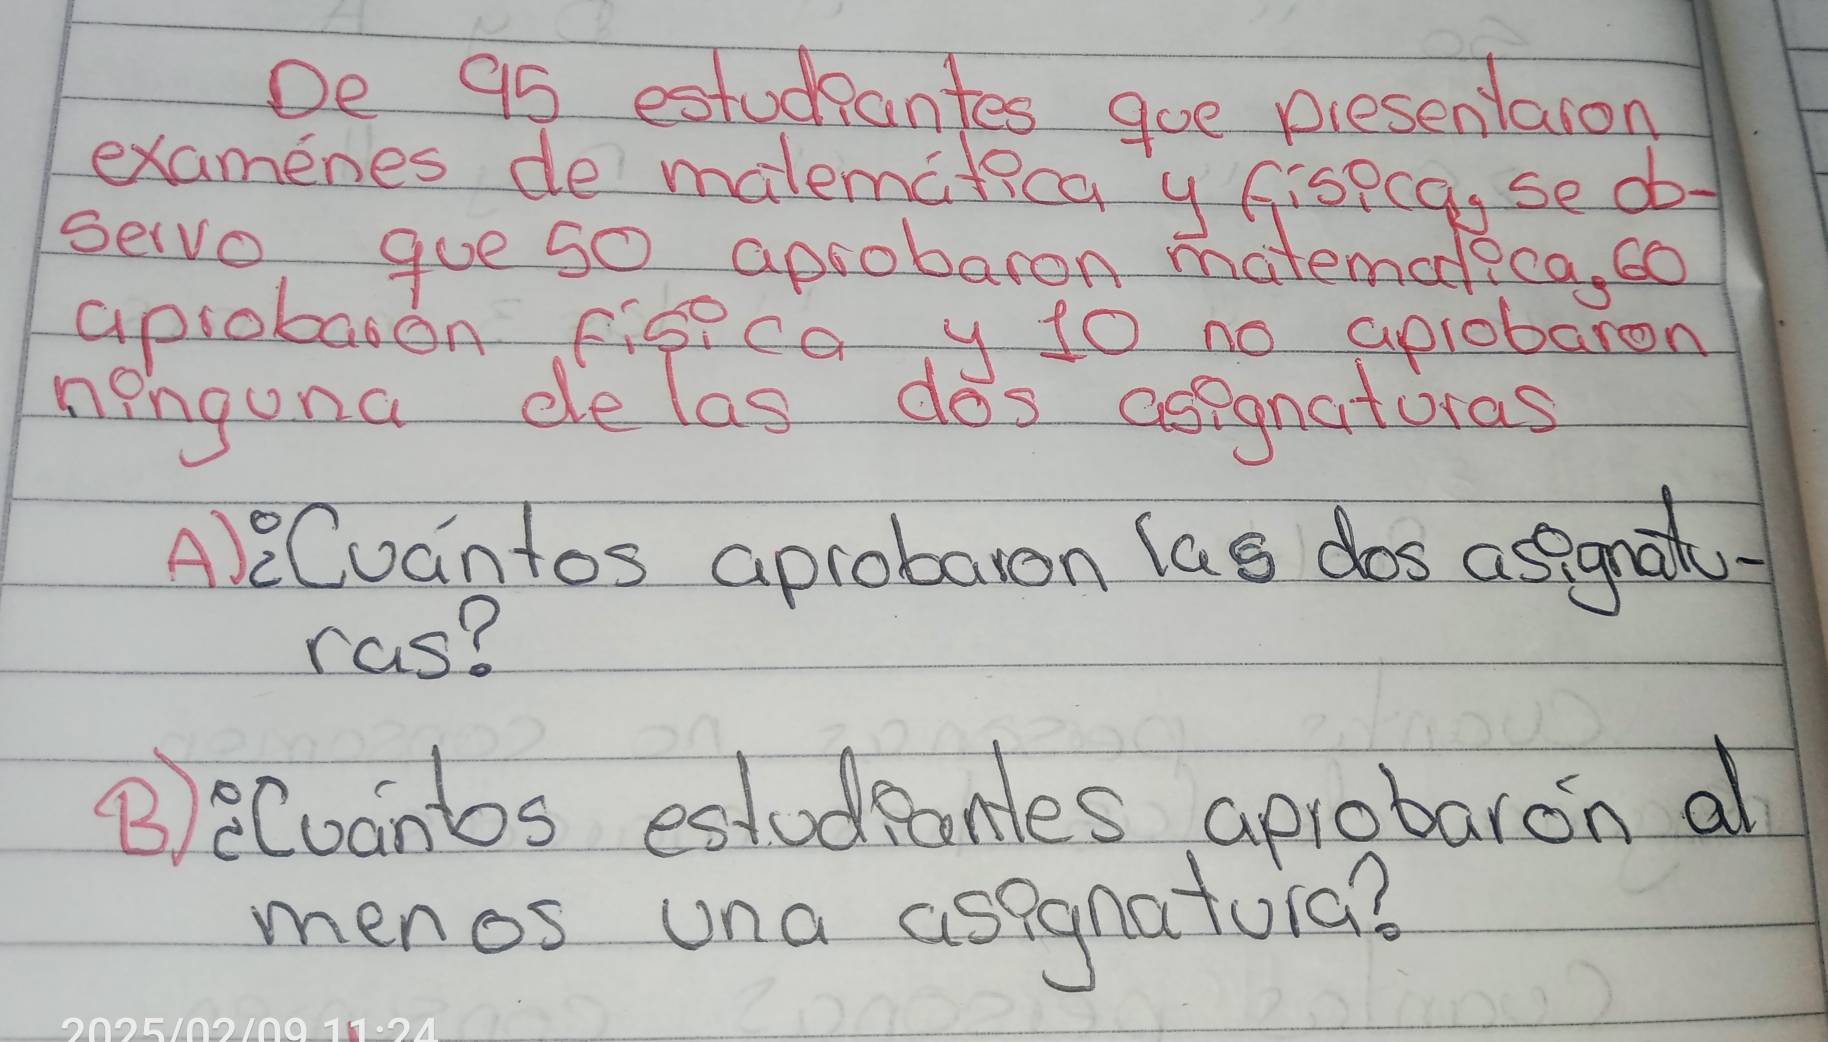 De 95 estudiantes que presentaron
examénes de matemática y física, se ob-
servo que 50 aprobaron matematica, 60
aprobarón física y 10 no aprobaron
ninguna de las dos asignaturas
A) ¿Cuántos aprobaron las dos asignatu-
ras?
B) ¿Cuántos estudiantes aprobarón al
menos una asignatura?
2025/02/09 11:24